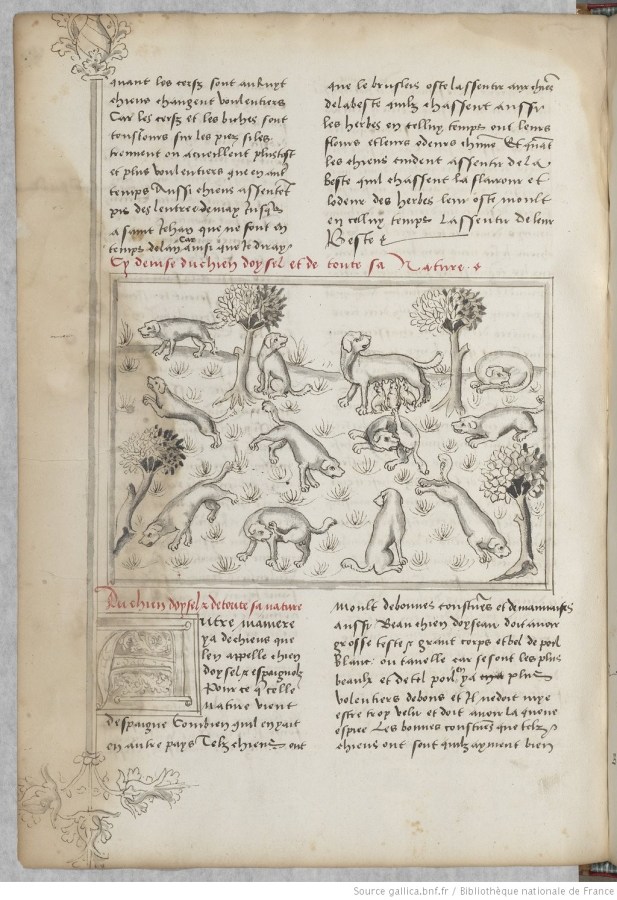 quant les cerfz sont au ruyt
chiens changent voulentiers
Car les cerfz et les biches sont
tousiours sur les piez si les
treuvent ou acveillent plustost
et plus voulentiers que en aut
temps Aussi chiens assentēt
pis des lentree de may Jusqs
a saint Jehan que ne font en
temps de lan Car ainsi que Je diray
que le brusleis oste lassentir aux chiēs
de la beste quilz chassent aussi
les herbes en celluy temps ont leurs
flours et leurs odeurs Et quāt
les chiens cuident assentir de la
beste quil chassent la flairour et
lodeur des herbes leur oste moult
en celluy temps lassentir de leur
Beste
Cy devise du chien doysel et de toute sa Nature
Du chien doysel et de toute sa nature
Autre maniere
ya de chiens que
len appelle chien
doysel et espaignolz
Pource q̄ celle
nature vient
despaigne Combien quil en yait
en autre pays Telz chiens ont
moult de bonnes coustūes et de mauvaises
aussi Beau chien doyseau doit avoir
grosse teste et grant corps et bel de poil
blanc ou tavelle car se sont les plus
beaulx et de tel poil en ya plus
volentiers de bons et Il ne doit mye
estre trop velu et doit avoir la queue
espiee Les bonnes coustūes que telz
chiens ont sont quilz ayment bien
Source gallica.bnf.fr / Bibliothèque nationale de France